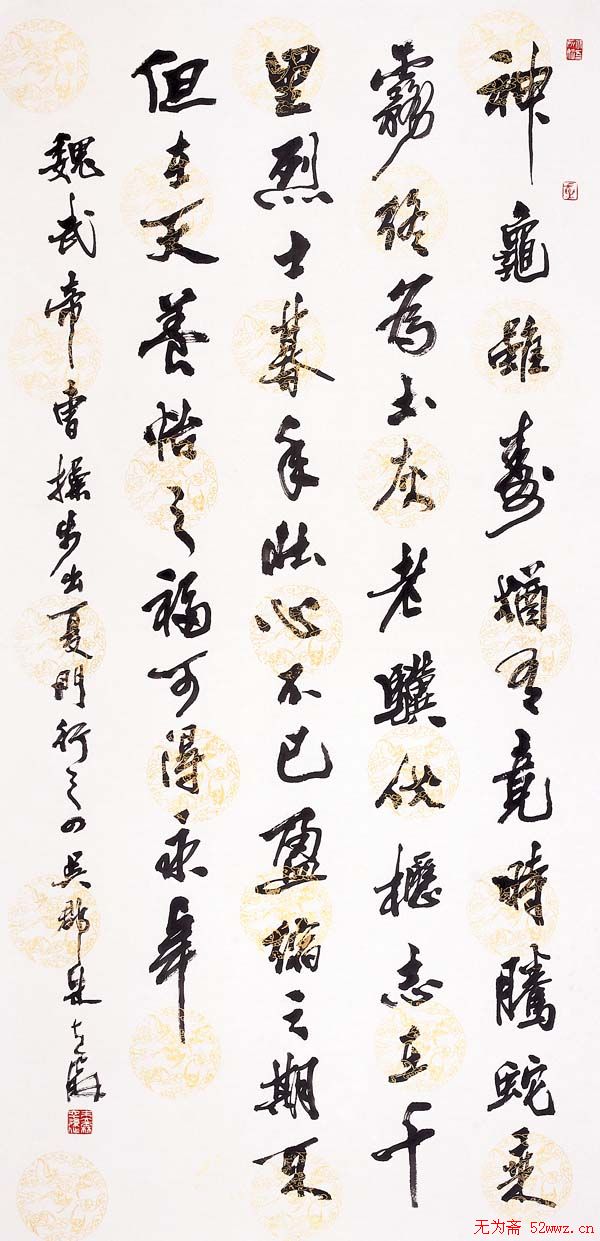 神龜雖壽猶有竟時騰蛇乘
霧終為土灰老驥伏櫪志在千
里烈士暮年壯心不已盈縮之期不
但在天養怡之福可得永年
魏武帝曹操步出夏門行之四吳郡朱
无为斋 52wwz.cn